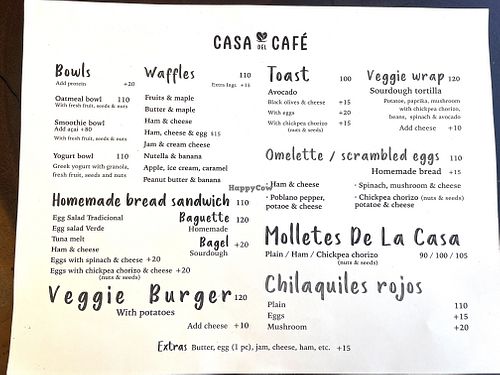 CASA DEL CAFÉ
Bowls
Add protein +20
Oatmeal bowl 110
With fresh fruit, seeds & nuts
Smoothie bowl
Add açai +80
With fresh fruit, seeds & nuts
Yogurt bowl 110
Greek yogurt with granola,
fresh fruit, seeds and nuts
Waffles 110
Extra Ingr. +15
Fruits & maple
Butter & maple
Ham & cheese
Ham, cheese & egg $15
Jam & cream cheese
Nutella & banana
Apple, ice cream, caramel
Peanut butter & banana
Toast 100
Avocado
Black olives & cheese +15
With eggs +20
With chickpea chorizo +15
(nuts & seeds)
Veggie wrap 120
Sourdough tortilla
Potatoe, paprika, mushroom
with chickpea chorizo,
beans, spinach & avocado
Add cheese +10
Omelette / scrambled eggs 110
Homemade bread +15
· Ham & cheese
· Poblano pepper,
potaoe & cheese
· Spinach, mushroom & cheese
· Chickpea chorizo (nuts & seeds)
potatoe & cheese
HappyCow
Homemade bread sandwich 110
Egg Salad Tradicional
Egg salad Verde
Tuna melt
Ham & cheese
Eggs with spinach & cheese +20
Eggs with chickpea chorizo & cheese +20
(nuts & seeds)
Baguette 120
Homemade
Bagel +20
Sourdough
Molletes De La Casa
Plain / Ham / Chickpea Chorizo 90 / 100 / 105
(nuts & seeds)
Veggie Burger 120
With potatoes
Add cheese +10
Chilaquiles rojos
Plain 110
Eggs +15
Mushroom +20
Extras Butter, egg (1 pc), jam, cheese, ham, etc. +15